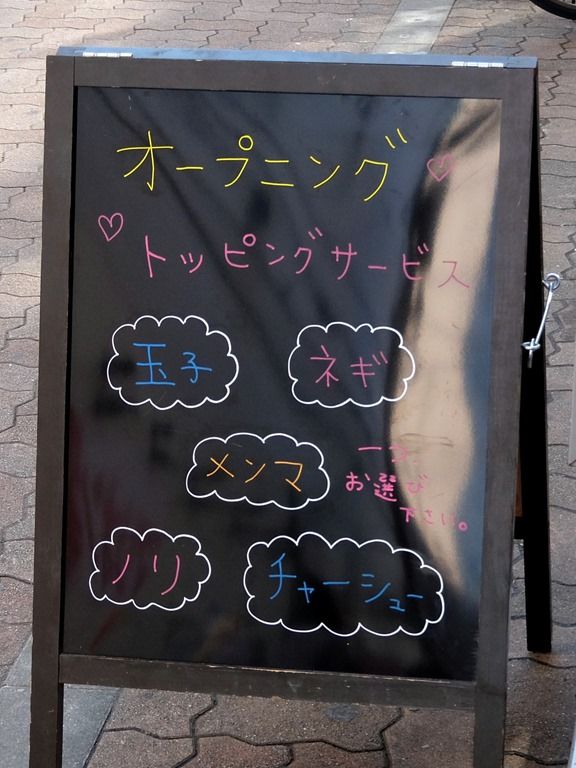 オープニング♡
♡トッピングサービス
玉子
ネギ
メンマ
一つ、
お選び
下さい。
ノリ
チャーシュー